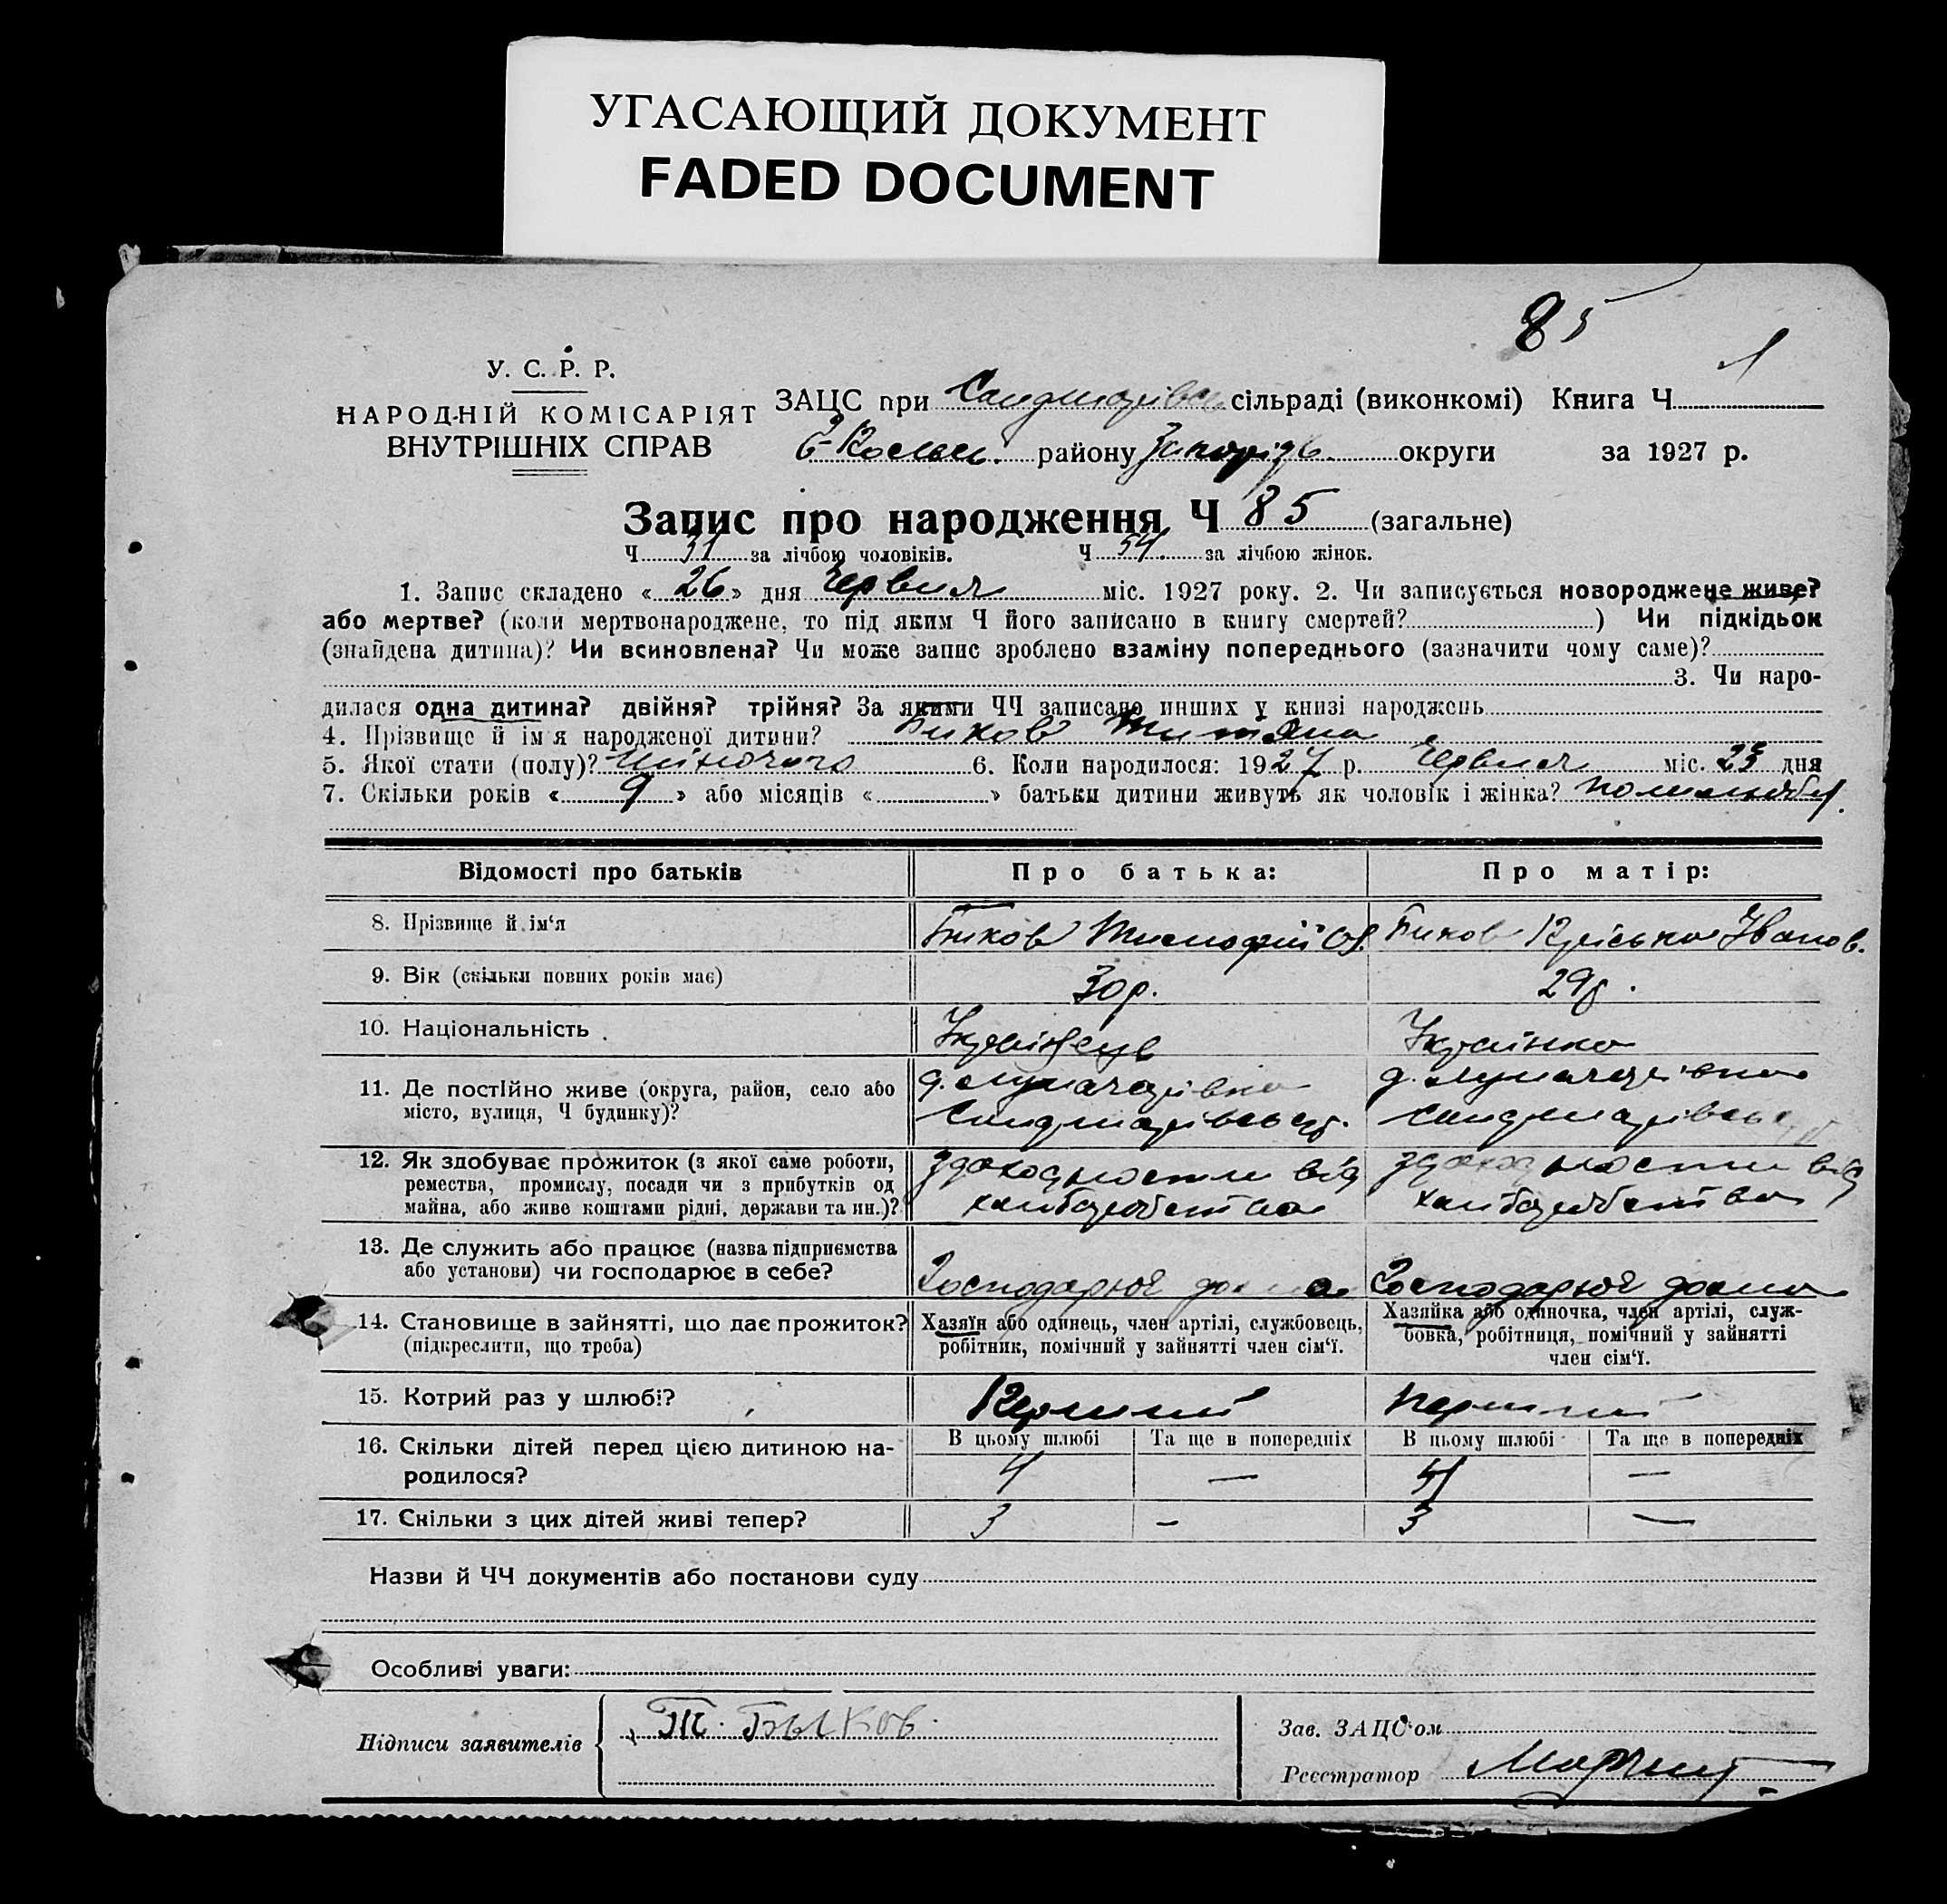 УГАСАЮЩИЙ ДОКУМЕНТ
FADED DOCUMENT
85
1
У. С. Р. Р.
НАРОДНІЙ КОМІСАРІЯТ
ВНУТРІШНІХ СПРАВ
ЗАЦС при сільраді (виконкомі) Книга Ч
району округи за 1927 р.
Запис про народження Ч 85 (загальне)
Ч 31 за лічбою чоловіків. Ч 54 за лічбою жінок.
1. Запис складено « 26 » дня Червня міс. 1927 року. 2. Чи записується новороджене живе?
або мертве? (коли мертвонароджене, то під яким Ч його записано в книгу смертей? ) Чи підкідьок
(знайдена дитина)? Чи всиновлена? Чи може запис зроблено взаміну попереднього (зазначити чому саме)?
3. Чи наро-
дилася одна дитина? двійня? трійня? За якими ЧЧ записано инших у книзі народжень
4. Прізвище й ім'я народженої дитини? Биков
5. Якої стати (полу)? жіночого 6. Коли народилося: 1927 р. Червня міс. 23 дня
7. Скільки років « 9 » або місяців « » батьки дитини живуть як чоловік і жінка?
Відомості про батьків Про батька: Про матір:
8. Прізвище й ім'я Биков Тимофій Биков Іванов.
9. Вік (скільки повних років має) 30 р. 29 р.
10. Національність Українець Українка
11. Де постійно живе (округа, район, село або
місто, вулиця, Ч будинку)?
12. Як здобуває прожиток (з якої саме роботи,
ремества, промислу, посади чи з прибутків од
майна, або живе коштами рідні, держави та ин.)? від хліборобства від хліборобства
13. Де служить або працює (назва підприємства
або установи) чи господарює в себе? Господарює дома Господарює дома
14. Становище в зайнятті, що дає прожиток?
(підкреслити, що треба)
Хазяїн або одинець, член артілі, службовець,
робітник, помічний у зайнятті член сім'ї.
Хазяйка або одиночка, член артілі, служ-
бовка, робітниця, помічний у зайнятті
член сім'ї.
15. Котрий раз у шлюбі? Перший Перший
16. Скільки дітей перед цією дитиною на-
родилося?
В цьому шлюбі Та ще в попередніх В цьому шлюбі Та ще в попередніх
4 — 4 —
17. Скільки з цих дітей живі тепер? 3 - 3 —
Назви й ЧЧ документів або постанови суду
Особливі уваги:
Підписи заявителів Т. Быков.
Зав. ЗАЦС'ом
Реєстратор